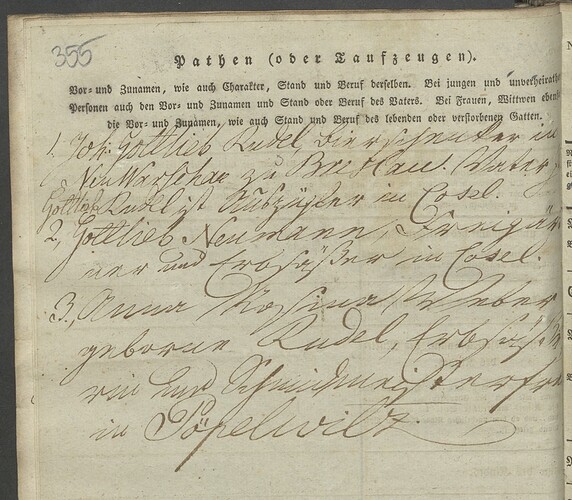 355
Pathen (oder Taufzeugen).
Vor- und Zunamen, wie auch Charakter, Stand und Beruf derselben. Bei jungen und unverheirath
Personen auch den Vor- und Zunamen und Stand oder Beruf des Vaters. Bei Frauen, Wittwen eben
die Vor- und Zunamen, wie auch Stand und Beruf des lebenden oder verstorbenen Gatten.
1, Joh: Gottlieb Rudel, Bierschenker in
Neu Warschau zu Breslau. Vater,
Gottlieb Rudel ist Auszügler in Cosel.
2, Gottlieb Neumann, Freigär
ner und Erbsäßer in Cosel.
3., Anna Rosina Weber
geborne Rudel, Erbsäße
rin und Schmiedmeisterfra
in Pöpelwitz.